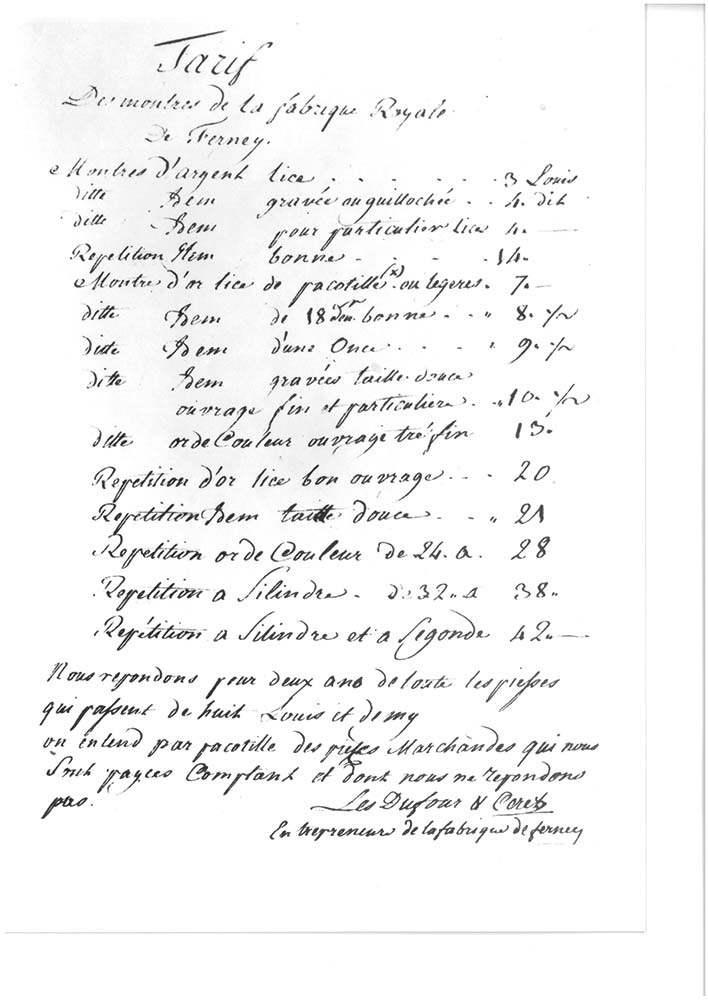 Tarif
Des montres de la fabrique Royale
De Ferney.
Montres d'argent lice . . . . . . . 3 Louis
ditte Idem gravée ou guillochée . . 4. dit
ditte Idem pour particulier lice 4. —
Repetition Item bonne . . . . 14.
Montre d'or lice de pacotille (x) ou legeres. 7. —
ditte Idem de 18 den. bonne . . " 8. ½
ditte Idem d'une Once . . . " 9. ½
ditte Idem gravées taille douce
ouvrage fin et particuliere . " 10. ½
ditte or de Couleur ouvrage tré fin 13.
Repetition d'or lice bon ouvrage . . . 20
Repetition Idem taille douce . . " 21
Repetition or de Couleur de 24. a . 28
Repetition a Silindre . de 32 " a 38 "
Repétition a Silindre et a Segonde 42 " —
Nous repondons pour deux ans de toute les piesses
qui passent de huit Louis et demy
on entend par pacotille des pieses Marchandes qui nous
Sont payees Comptant et dont nous ne repondons
pas.
Les Dufour & Ceret
Entrepreneurs de la fabrique de ferney